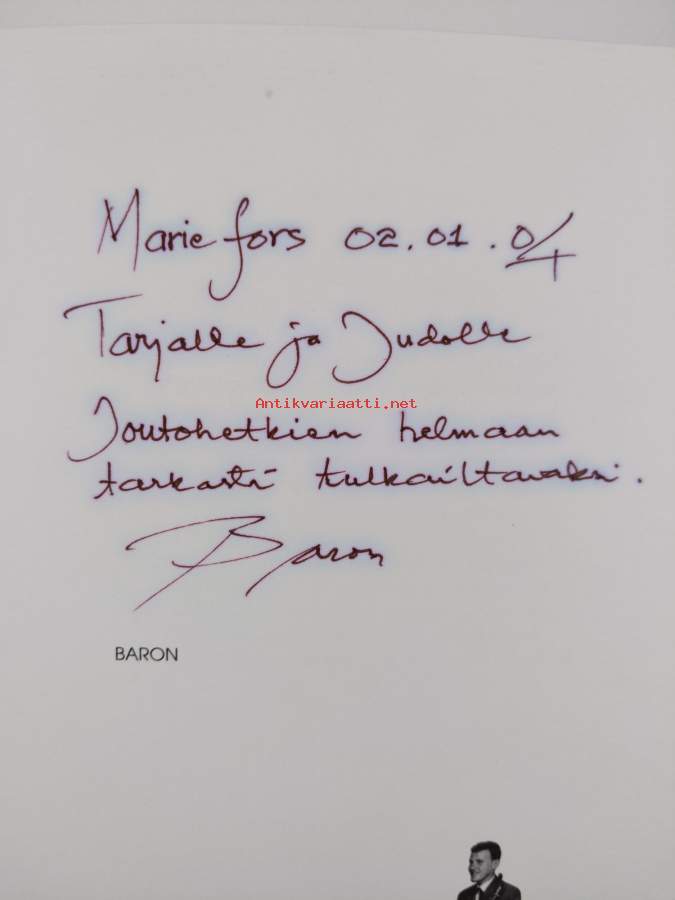 Marie fors 02.01.04
Tarjalle ja Judolle
Antikvariaatti.net
Joutohetkien helmaan
tarkasti tulkailtavaksi.
Baron
BARON